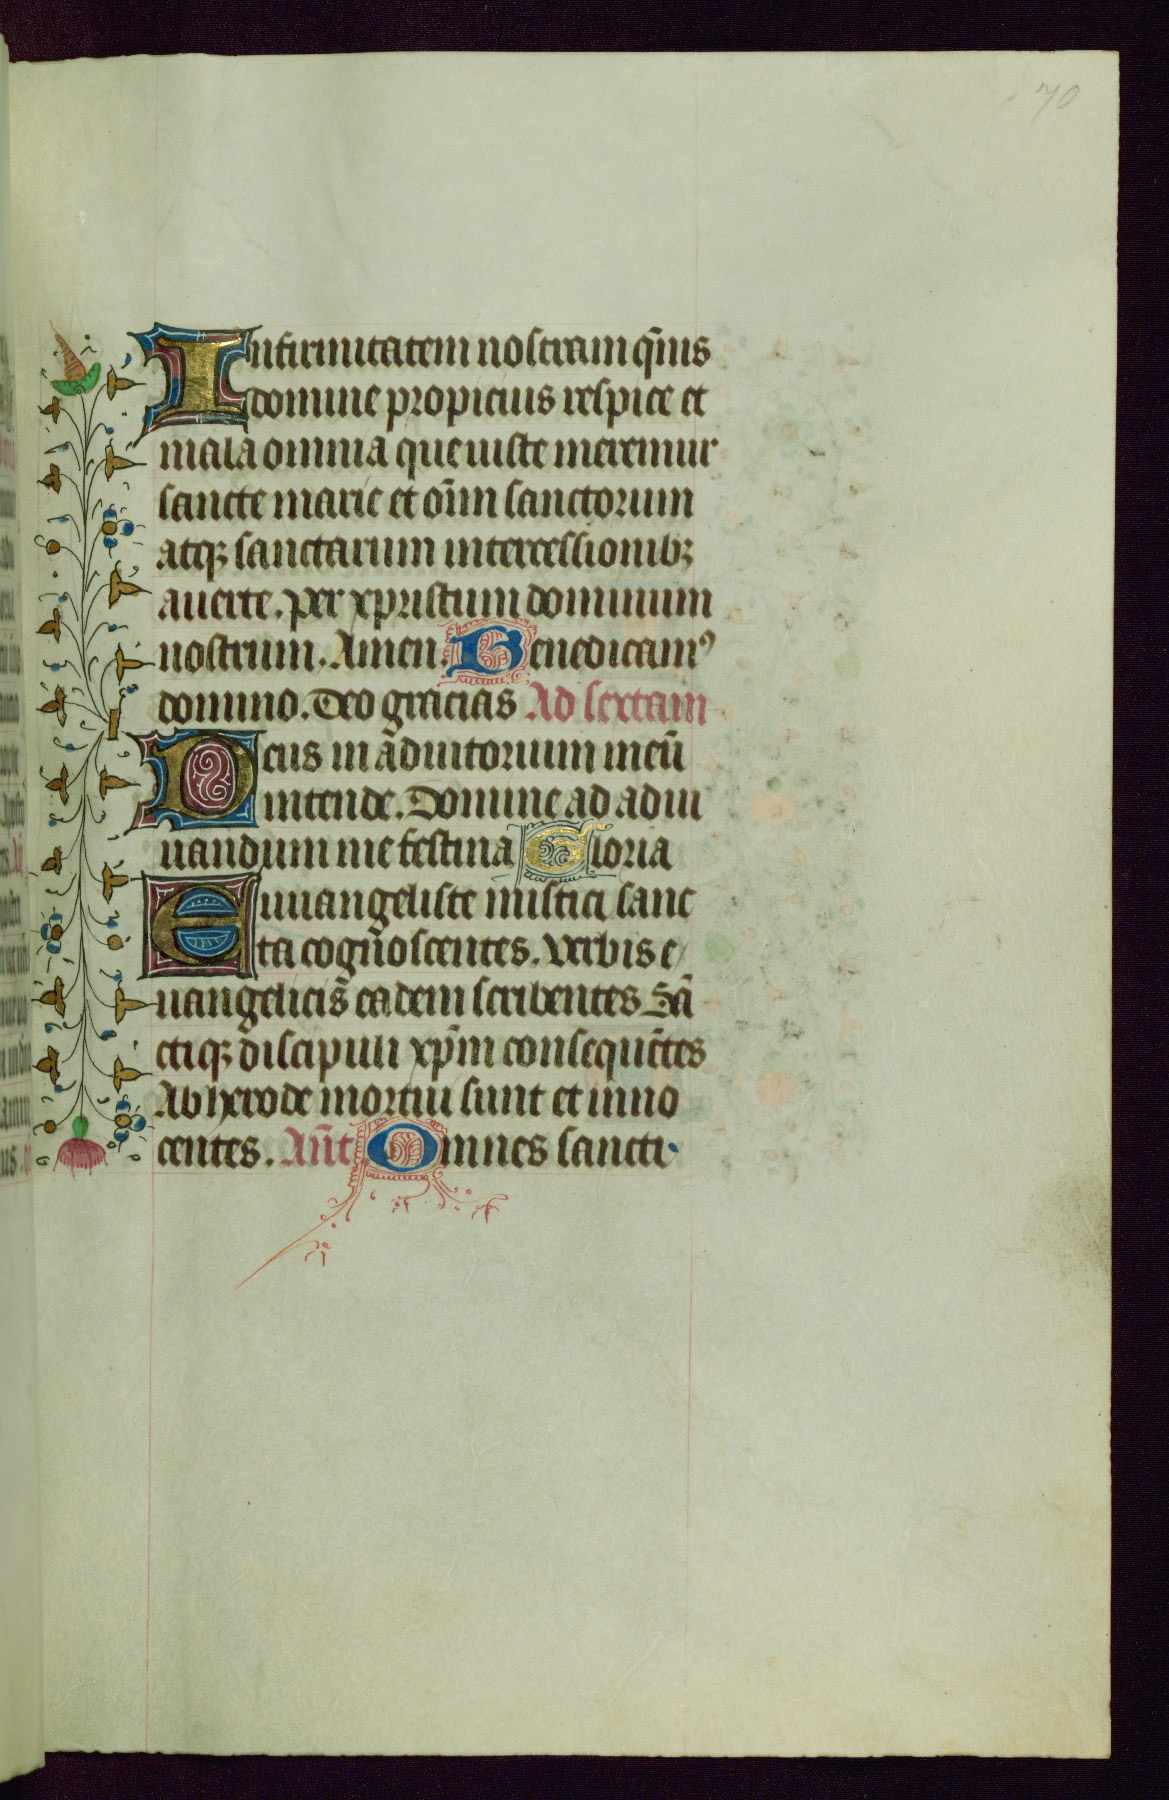 70
Infirmitatem nostram q̄ms
domine propicius respice et
mala omnia que iuste meremur
sancte marie et oīm sanctorum
atqꝫ sanctarum intercessionibꝫ
auerte. per xpristum dominum
nostrum. Amen. Benedicamꝰ
domino. Deo gracias Ad sextam
Deus in adiutorium meū
intende. Domine ad adiu
uandum me festina Gloria
Euuangeliste mistici sanc
ta cognoscentes. verbis e
uangelicis eadem scribentes Sā
ctiqꝫ discipuli xp̄m consequētes
Ab herode mortui sunt et inno
centes. An̄t Omnes sancti.